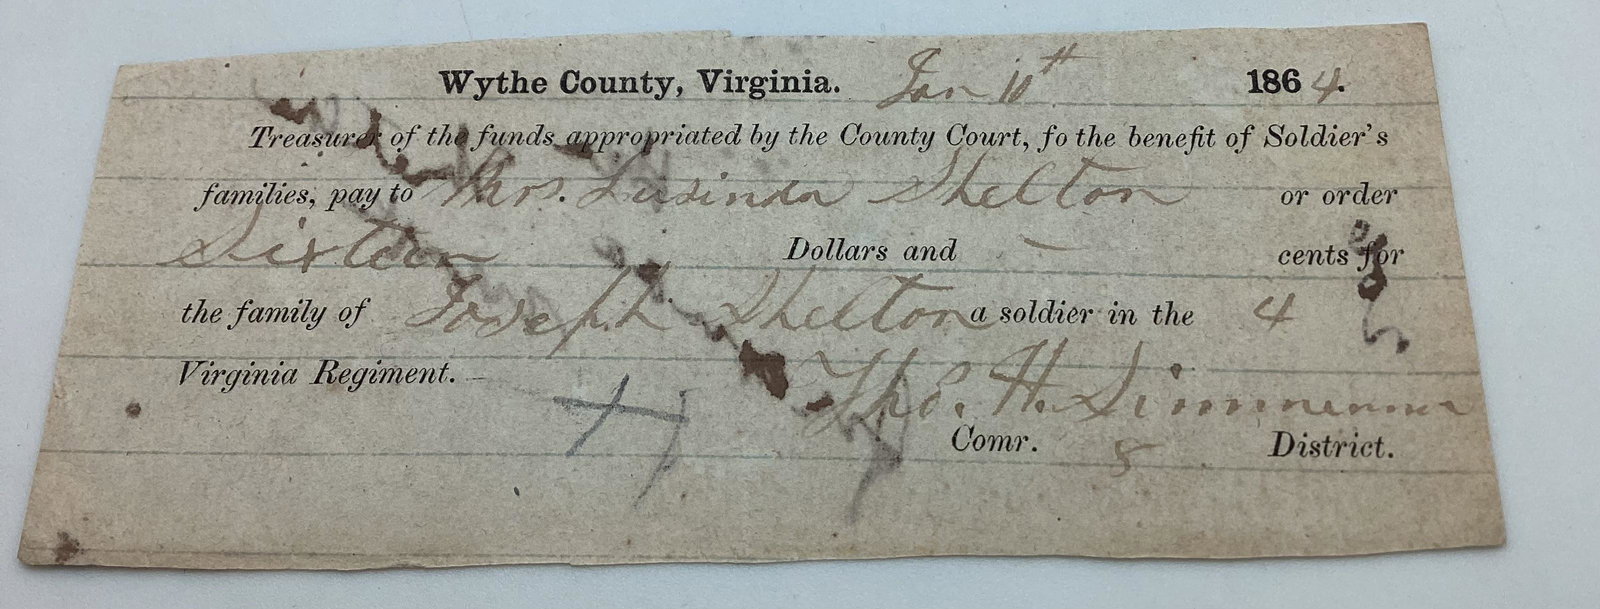 Wythe County, Virginia. Jan 10th 1864.
Treasurer of the funds appropriated by the County Court, fo the benefit of Soldier's
families, pay to Mrs. Lusinda Shelton or order
Sixteen Dollars and - cents for
the family of Joseph Shelton a soldier in the 4
Virginia Regiment.
Tho. H. Simmerman
Comr. 8 District.